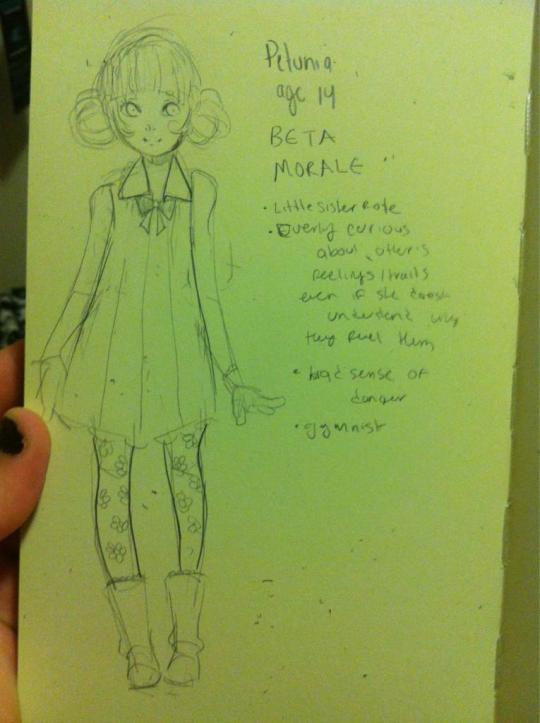 Petunia
age 14
BETA
MORALE
• Little sister Role
• Overly curious
about other's
feelings/traits
even if she doesn't
understand why
they feel them
• bad sense of
danger
• gymnist